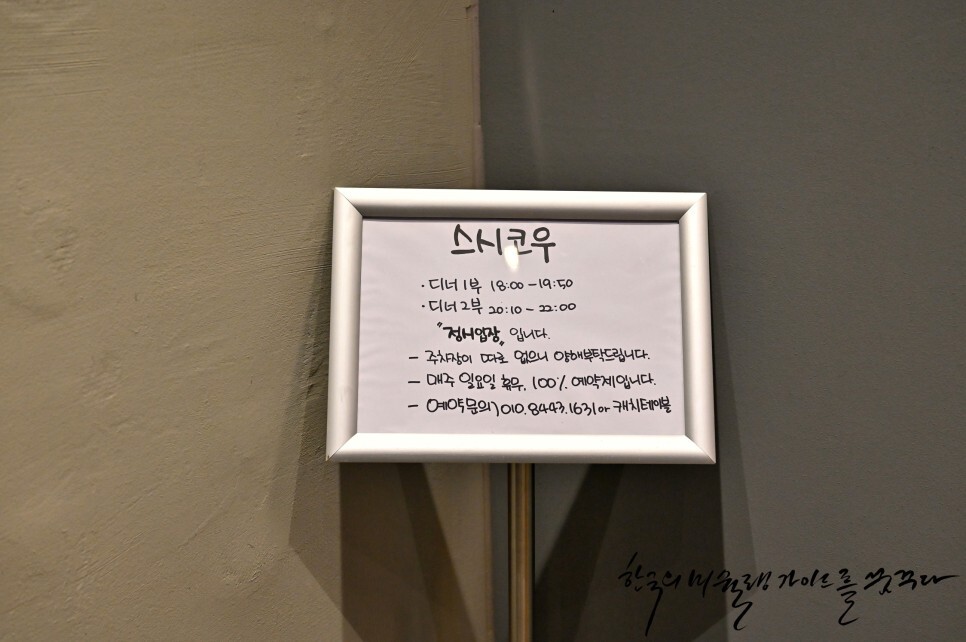 스시코우
· 디너 1부 18:00 - 19:50
· 디너 2부 20:10 - 22:00
"정시입장" 입니다.
- 주차장이 따로 없으니 양해부탁드립니다.
- 매주 일요일 휴무, 100% 예약제입니다.
- 예약문의) 010.8443.1631 or 캐치테이블
한국의 미슐랭 가이드를 꿈꾸다